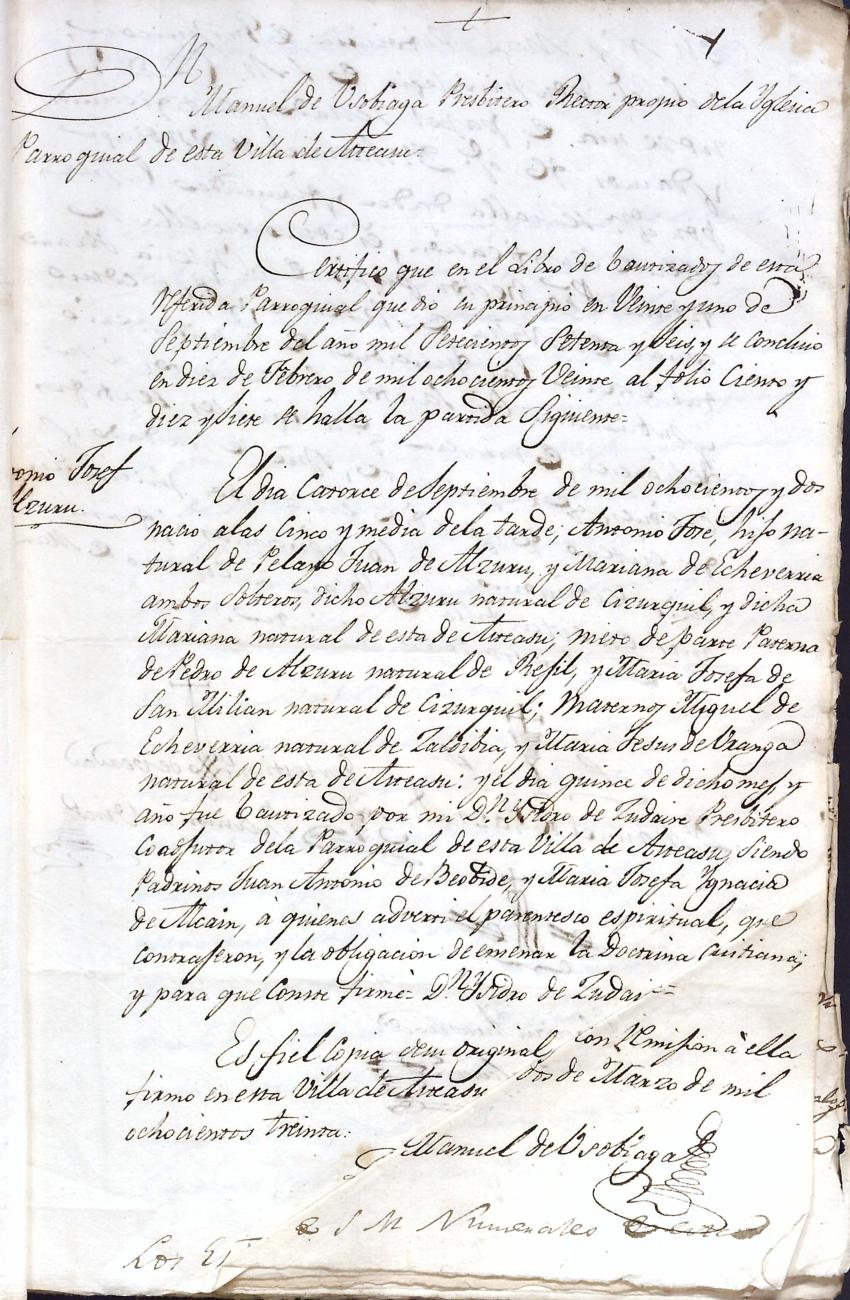 Manuel de Usobiaga Presbitero Rector propio de la Yglesia
Parroquial de esta Villa de Asteasu=
Certifico que en el Libro de bautizados de esta
referida Parroquial que dio su principio en Veinte y uno de
Septiembre del año mil Setecientos Setenta y Seis, y se concluio
en diez de Febrero de mil ochocientos Veinte al folio Ciento y
diez y siete se halla la partida Siguiente=
onio Josef
lzuru.
El dia Catorce de Septiembre de mil ochocientos y dos
nacio a las Cinco y media de la tarde, Antonio Jose, hijo na-
tural de Pelayo Juan de Alzuru, y Mariana de Echeverria
ambos Solteros, dicho Alzuru natural de Cizurquil, y dicha
Mariana natural de esta de Asteasu; nieto de parte Paterna
de Pedro de Alzuru natural de Resil, y Maria Josefa de
San Milian natural de Cizurquil; Maternos Miguel de
Echeverria natural de Zaldibia, y Maria Jesus de Uranga
natural de esta de Asteasu: y el dia quince de dicho mes y
año fue bautizado por mi Dn. Ysidro de Zudaire Presbitero
Coadjutor de la Parroquial de esta Villa de Asteasu, Siendo
Padrinos Juan Antonio de Beobide, y Maria Josefa Ygnacia
de Alcain, à quienes adverti el parentesco espiritual, que
contrajeron, y la obligacion de enseñar la Doctrina Cristiana;
y para que Conste firmè= Dn. Ysidro de Zudai
Es fiel Copia de su original, con remision à ella
firmo en esta Villa de Asteasu dos de Marzo de mil
ochocientos treinta.
Manuel de Usobiaga
S M Numerales
Los